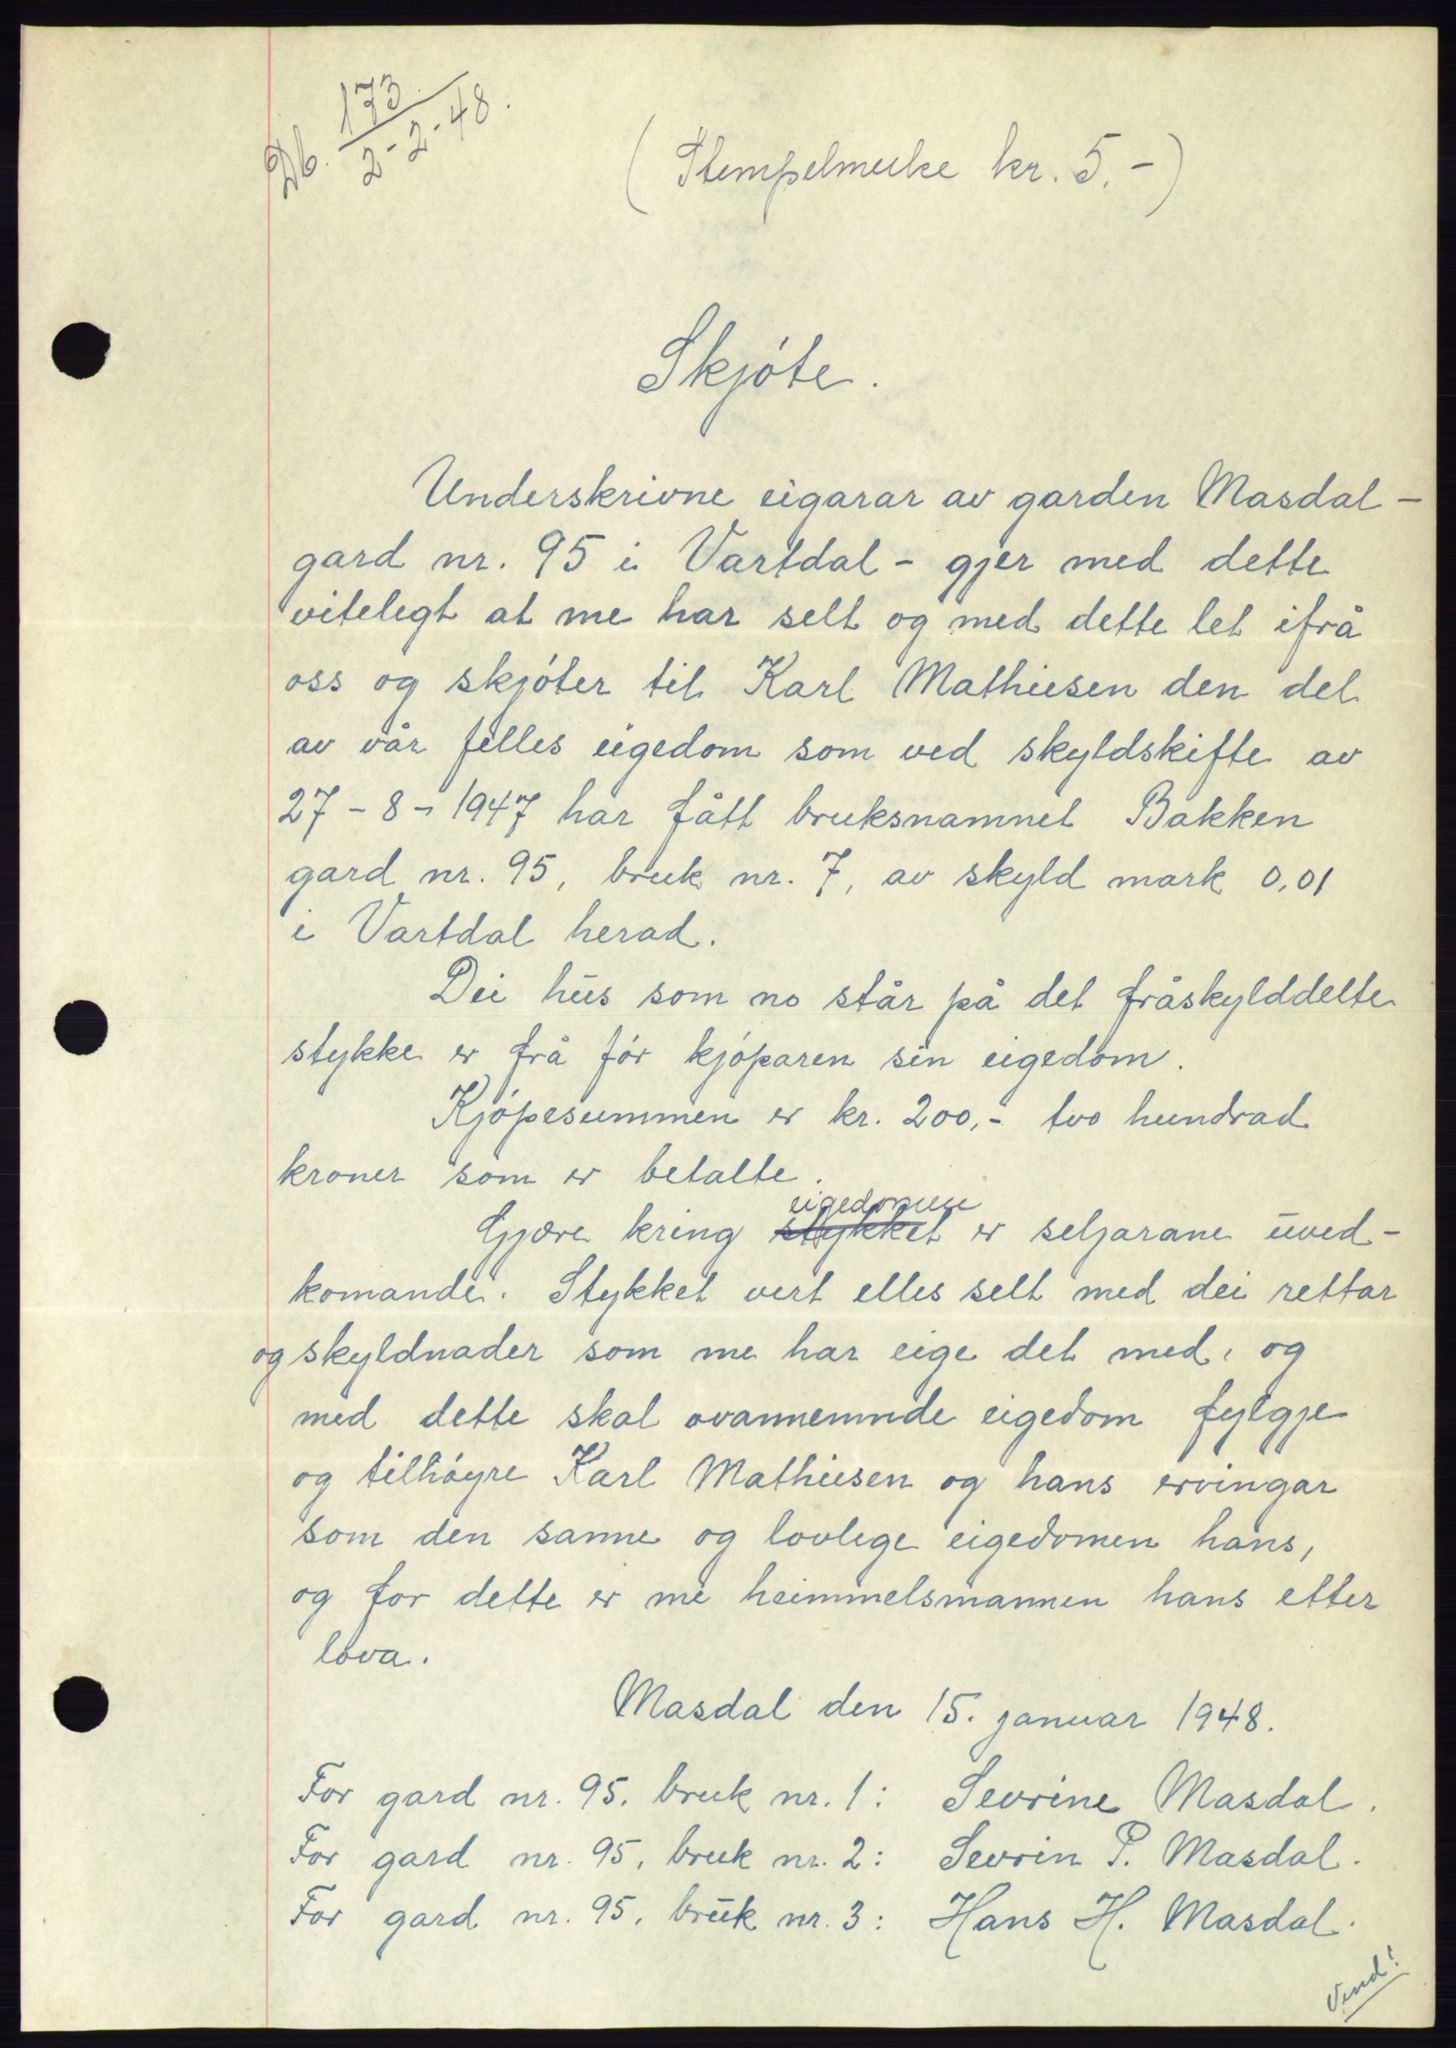 Db. 173
2-2-48.
(Stempelmerke kr. 5.-)
Skjóte.
Underskrivne eigarar av garden Masdal -
gard nr. 95 i Vartdal - gjer med dette
vitelegt at me har selt og med dette let ifrå
oss og skjóter til Karl Mathiesen den del
av vår felles eigedom som ved skyldskifte av
27-8-1947 har fått bruksnamnet Bakken
gard nr. 95, bruk nr. 7, av skyld mark 0,01
i Vartdal herad.
Dei hus som no står på det fråskylddelte
stykke er frå fór kjóparen sin eigedom.
Kjópesummen er kr. 200,- tvo hundrad
kroner som er betalte.
eigedomen
Gjære kring stykket er seljarane uved-
komande. Stykket vert elles selt med dei rettar
og skyldnader som me har eige det med, og
med dette skal ovannemnde eigedom fylgje
og tilhóyre Karl Mathiesen og hans ervingar
som den sanne og lovlege eigedomen hans,
og for dette er me heimmelsmannen hans etter
lova.
Masdal den 15. januar 1948.
For gard nr. 95, bruk nr. 1: Sevrine Masdal.
For gard nr. 95, bruk nr. 2: Sevrin P. Masdal.
For gard nr. 95, bruk nr. 3: Hans H. Masdal.
Vend!